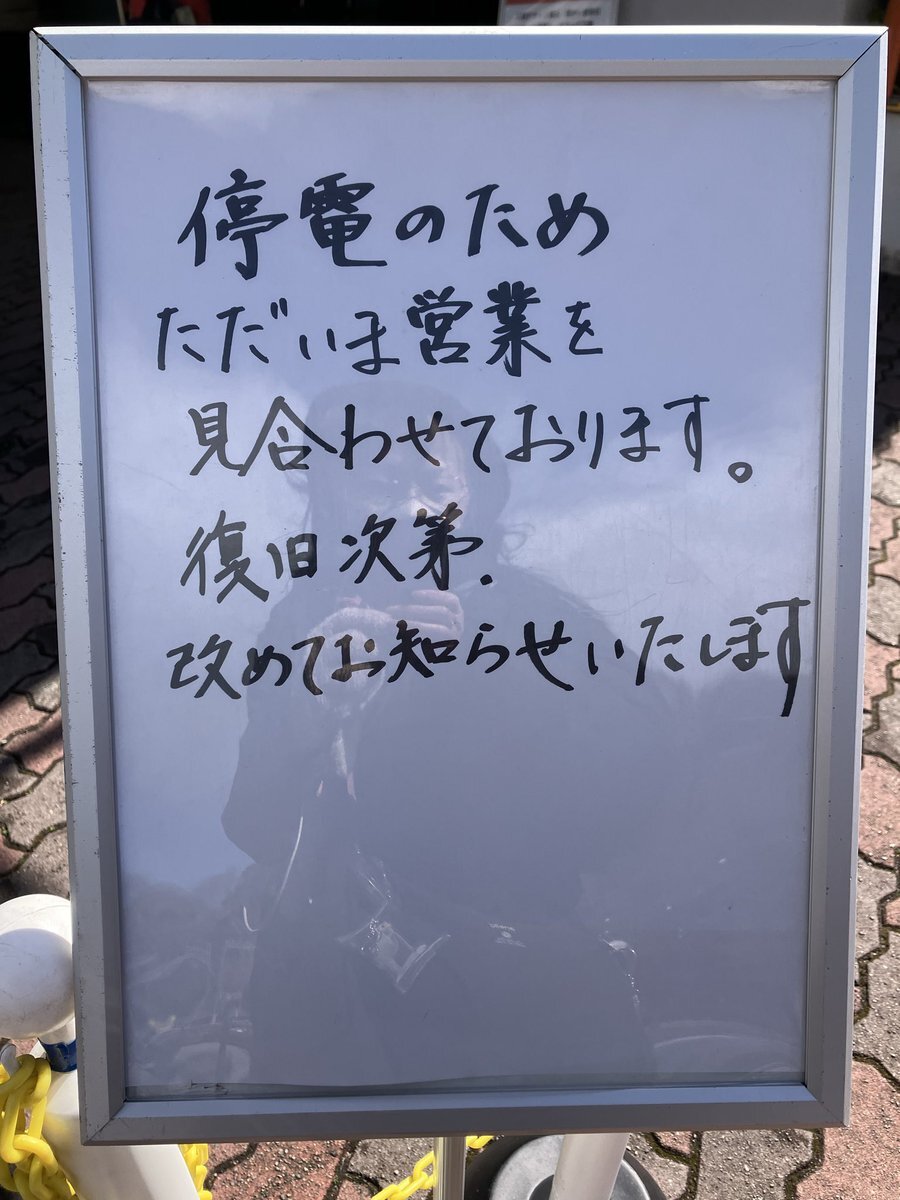 停電のため
ただいま営業を
見合わせております。
復旧次第.
改めてお知らせいたします